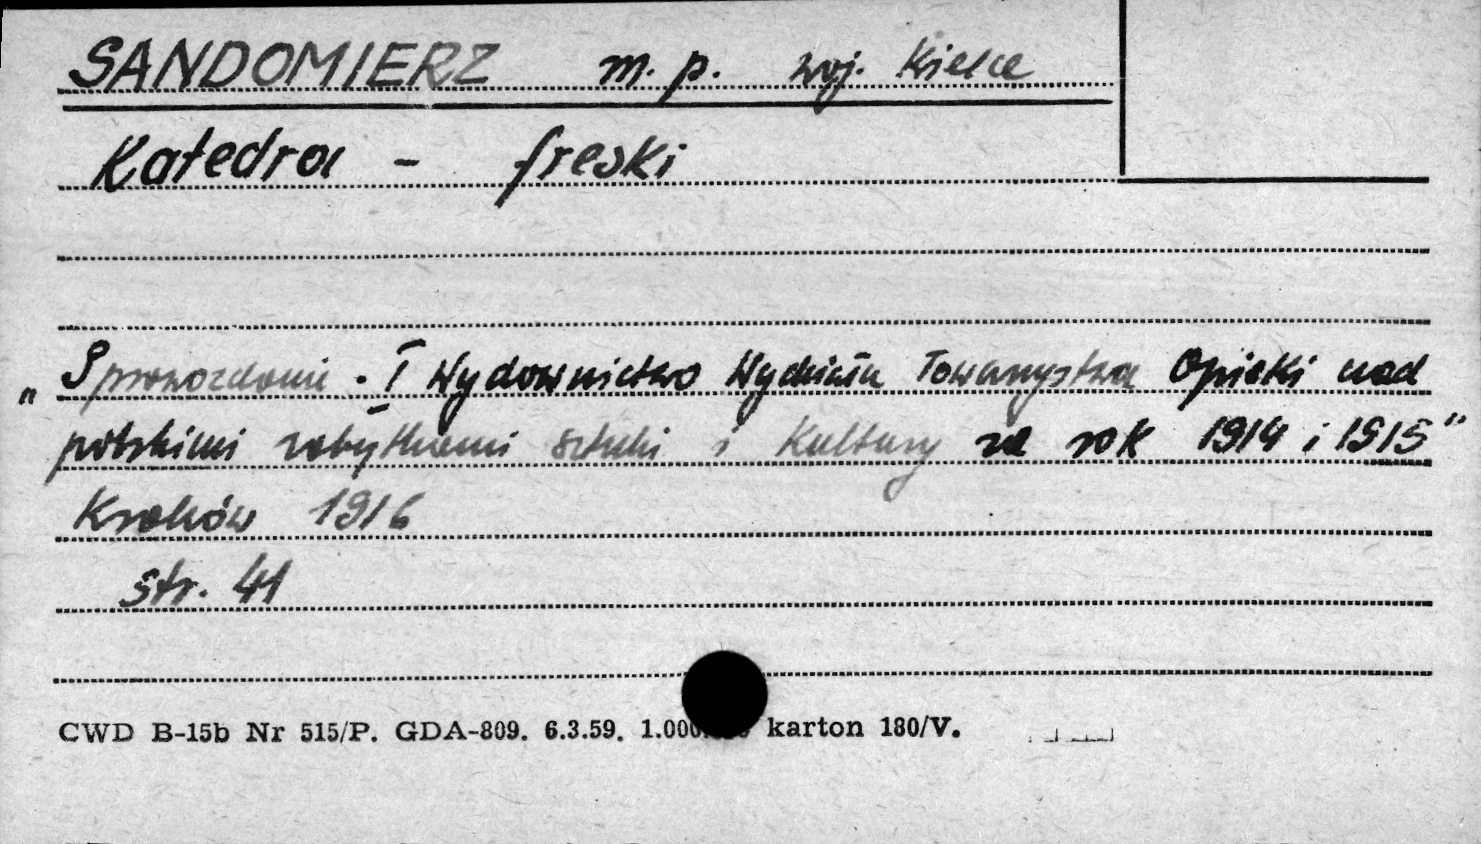 SANDOMIERZ m. p. woj. Kielce
Katedra - freski
„Sprawozdanie. I Wydawnictwo Wydziału Towarzystwa Opieki nad
polskimi zabytkami sztuki i Kultury za rok 1914 i 1915"
Kraków 1916
str. 41
CWD B-15b Nr 515/P. GDA-809. 6.3.59. 1.000 karton 180/V.